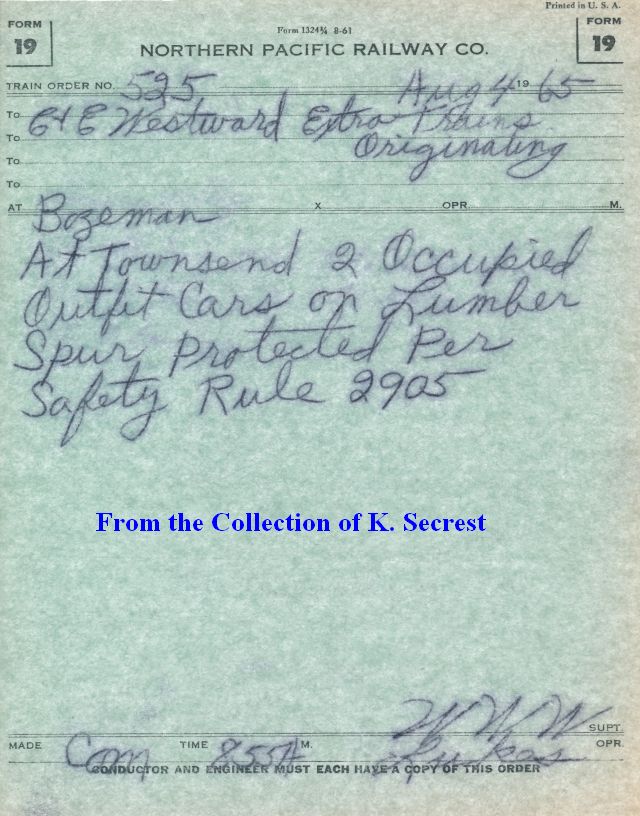 Printed in U. S. A.
FORM 19
Form 1324¾ 8-61
FORM 19
NORTHERN PACIFIC RAILWAY CO.
TRAIN ORDER NO. 525 Aug 4 19 65
To C&E Westward Extra Trains
To Originating
To
To
AT Bozeman X OPR. M.
At Townsend 2 Occupied
Outfit Cars on Lumber
Spur Protected Per
Safety Rule 2905
From the Collection of K. Secrest
WWW SUPT.
MADE Com TIME 855A M. OPR.
CONDUCTOR AND ENGINEER MUST EACH HAVE A COPY OF THIS ORDER